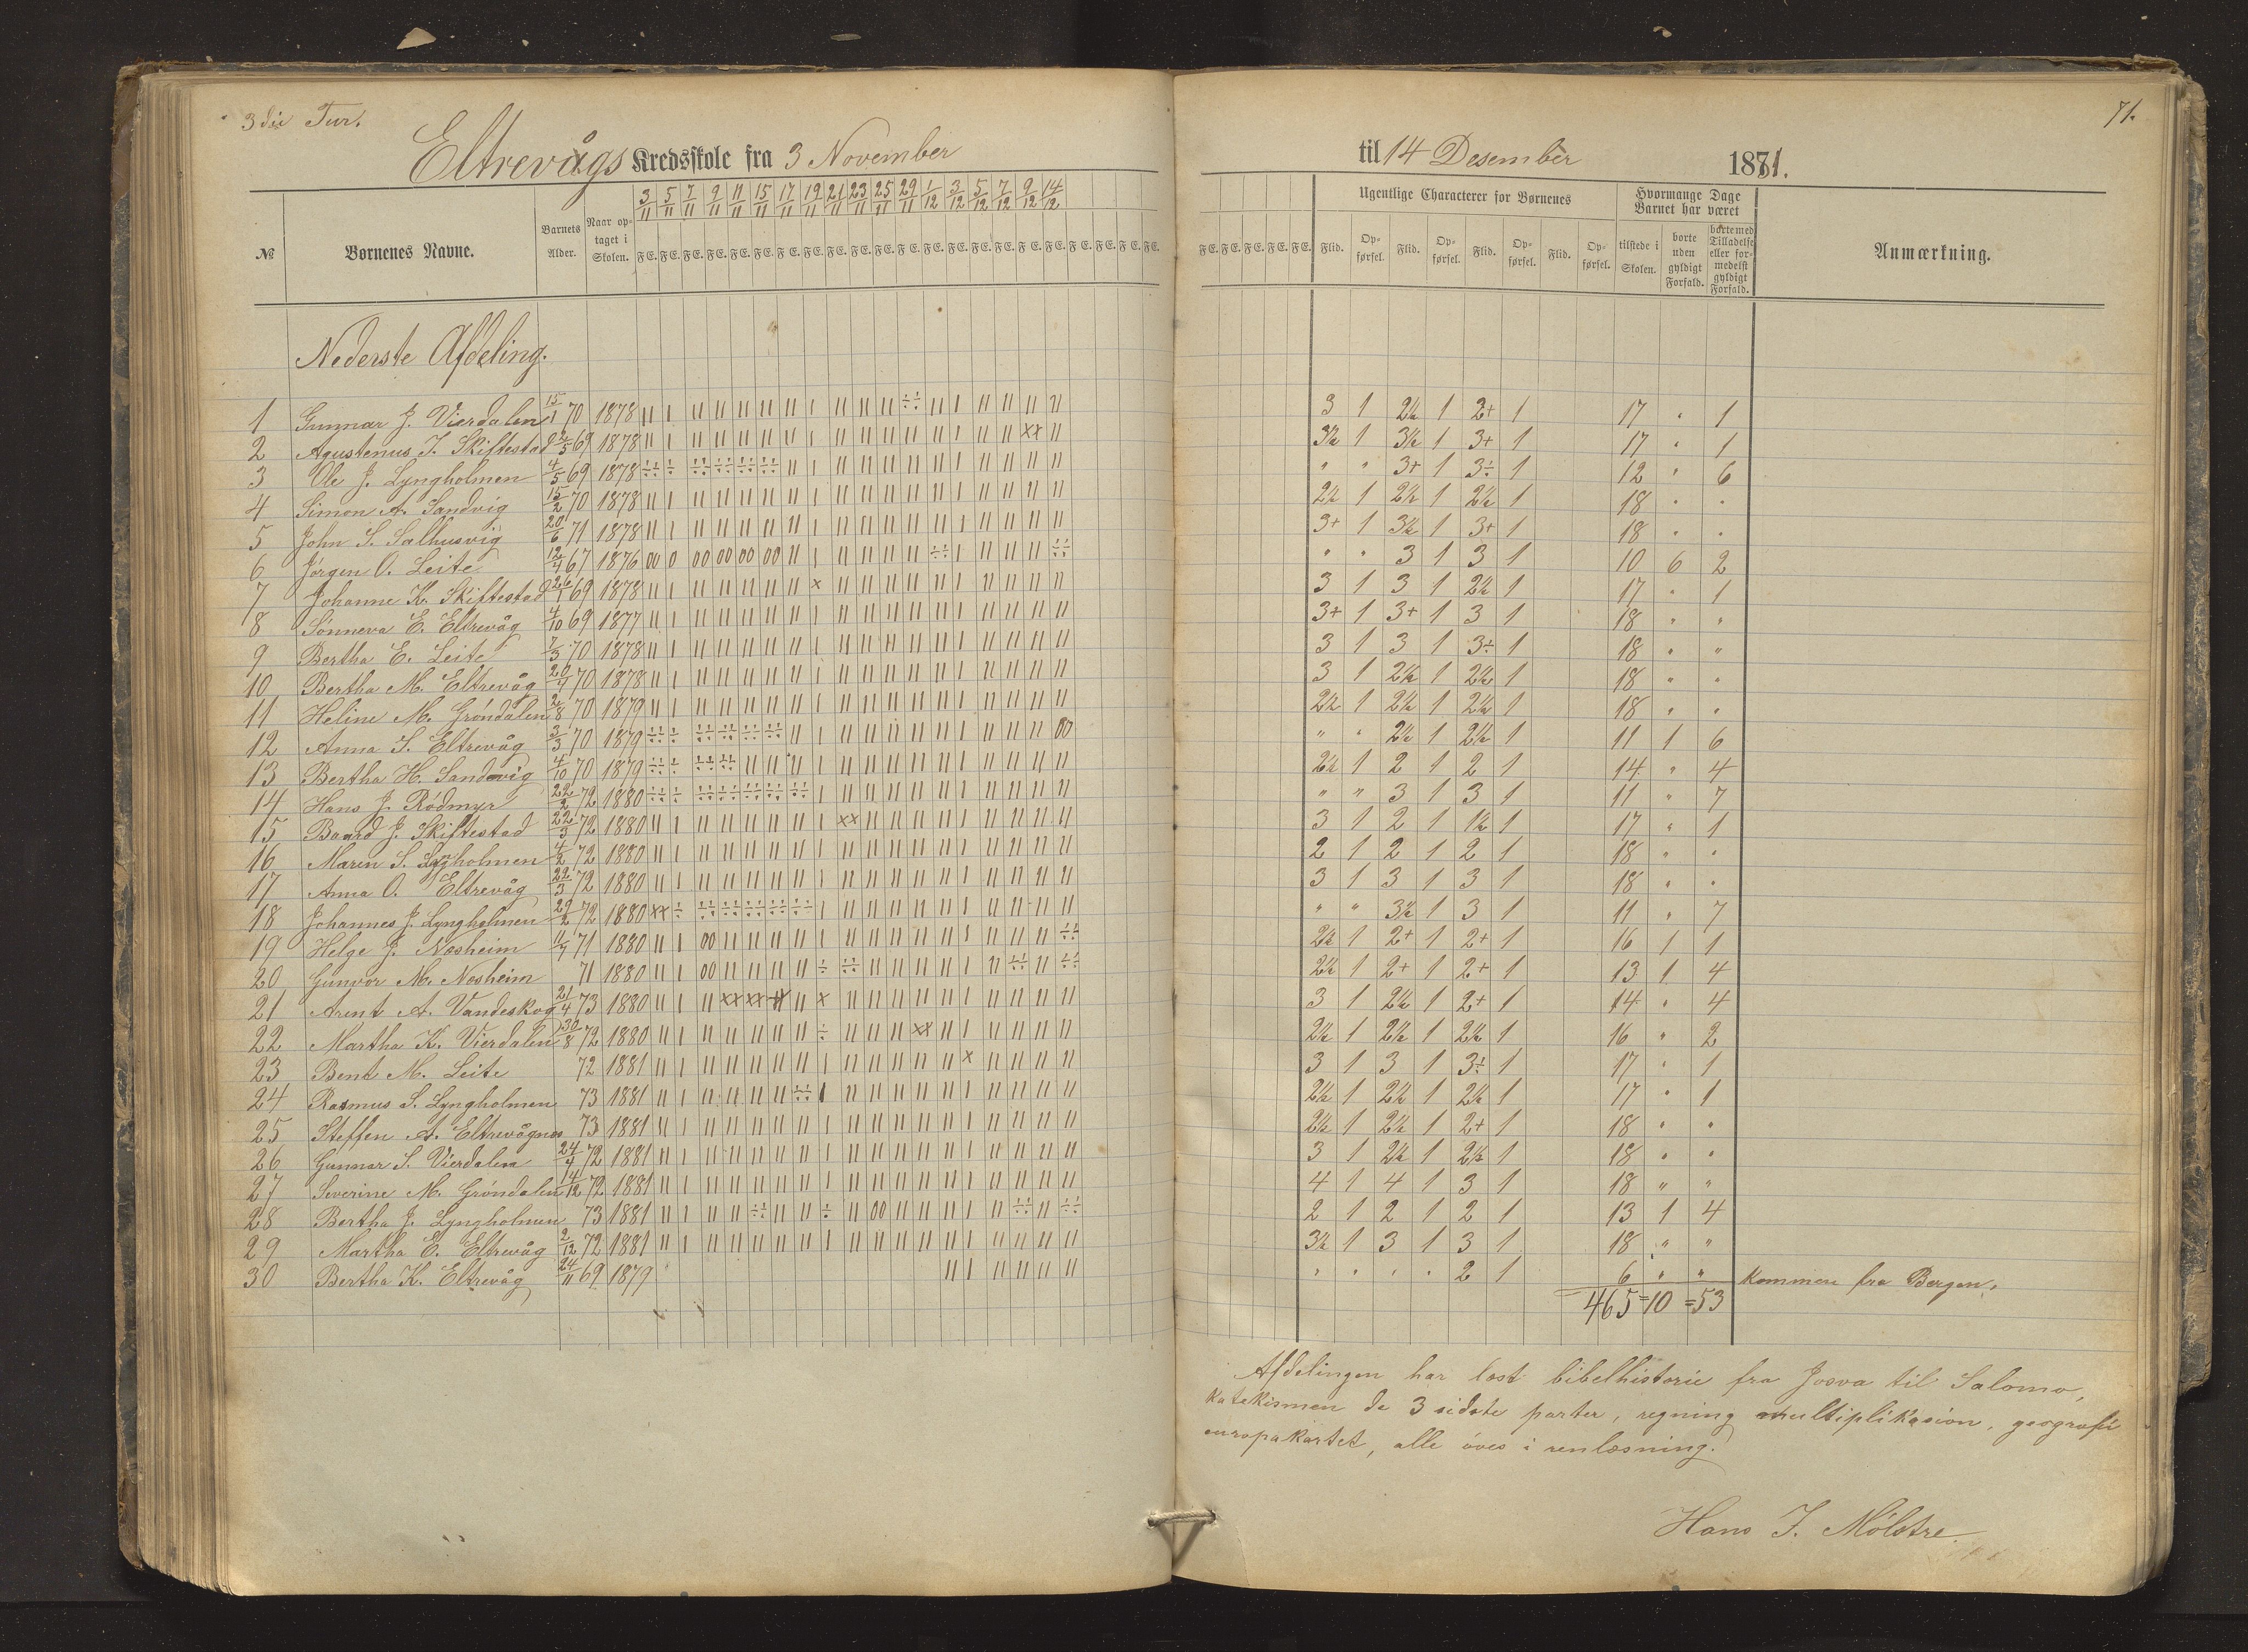 3die Tur.
Eltrevågs Kredsskole fra 3 November
3/11 5/11 7/11 9/11 11/11 15/11 17/11 19/11 21/11 23/11 25/11 29/11 1/12 3/12 5/12 7/12 9/12 14/12
№ Børnenes Navne. Barnets Alder. Naar optaget i Skolen. F.E. F.E. F.E. F.E. F.E. F.E. F.E. F.E. F.E. F.E. F.E. F.E. F.E. F.E. F.E. F.E. F.E. F.E. F.E. F.E. F.E. F.E.
Nederste Afdeling.
1 Gunnar J. Vierdalen 15/1 70 1878
2 Agustenus J. Skiftestad 2/5 69 1878
3 Ole J. Lyngholmen 4/5 69 1878
4 Simon A. Sandvig 15/2 70 1878
5 John S. Salhusvig 20/6 71 1878
6 Jörgen O. Leite 12/4 67 1876
7 Johanne K. Skiftestad 26/1 69 1878
8 Sönneva E. Eltrevåg 4/10 69 1877
9 Bertha E. Leite 7/3 70 1878
10 Bertha M. Eltrevåg 20/4 70 1878
11 Heline M. Gröndalen 2/8 70 1879
12 Anna S. Eltrevåg 3/3 70 1879
13 Bertha H. Sandvig 4/10 70 1879
14 Hans J. Rödmyr 22/2 72 1880
15 Baard J. Skiftestad 22/3 72 1880
16 Maren S. Lyngholmen 4/2 72 1880
17 Anna O. Eltrevåg 22/3 72 1880
18 Johannes J. Lyngholmen 29/2 72 1880
19 Helge J. Nosheim 11/7 71 1880
20 Gunvor M. Nosheim 71 1880
21 Arent A. Vandeskog 21/4 73 1880
22 Martha K. Vierdalen 30/8 72 1880
23 Bent M. Leite 72 1881
24 Rasmus S. Lyngholmen 73 1881
25 Steffen A. Eltrevågnes 73 1881
26 Gunnar S. Vierdalen 24/4 72 1881
27 Severine M. Gröndalen 14/12 72 1881
28 Bertha J. Lyngholmen 73 1881
29 Martha E. Eltrevåg 2/12 72 1881
30 Bertha K. Eltrevåg 24/11 69 1879
71.
til 14 Desember 1881.
Ugentlige Characterer for Børnenes Hvormange Dage Barnet har været
F.E. F.E. F.E. F.E. F.E. Flid. Opførsel. Flid. Opførsel. Flid. Opførsel. Flid. Opførsel. tilstede i Skolen. borte uden gyldigt Forfald. borte med Tilladelse eller formedelst gyldigt Forfald. Anmærkning.
3 1 2½ 1 2+ 1 17 " 1
3½ 1 3½ 1 3+ 1 17 " 1
" " 3+ 1 3÷ 1 12 " 6
2½ 1 2½ 1 2½ 1 18 " "
3+ 1 3½ 1 3+ 1 18 " "
" " 3 1 3 1 10 6 2
3 1 3 1 2½ 1 17 " 1
3+ 1 3+ 1 3 1 18 " "
3 1 3 1 3÷ 1 18 " "
3 1 2½ 1 2½ 1 18 " "
2½ 1 2½ 1 2½ 1 18 " "
" " 2½ 1 2½ 1 11 1 6
2½ 1 2 1 2 1 14 " 4
" " 3 1 3 1 11 " 7
3 1 2 1 1½ 1 17 " 1
2 1 2 1 2 1 18 " "
3 1 3 1 3 1 18 " "
" " 3½ 1 3 1 11 " 7
2½ 1 2+ 1 2+ 1 16 1 1
2½ 1 2+ 1 2+ 1 13 1 4
3 1 2½ 1 2+ 1 14 " 4
2½ 1 2½ 1 2½ 1 16 " 2
3 1 3 1 3÷ 1 17 " 1
2½ 1 2½ 1 2½ 1 17 " 1
2½ 1 2½ 1 2+ 1 18 " "
3 1 2½ 1 2½ 1 18 " "
4 1 4 1 3 1 18 " "
2 1 2 1 2 1 13 1 4
3½ 1 3 1 3 1 18 " "
" " " " 2 1 6 " " kommen fra Bergen.
465=10=53
Afdelingen har læst bibelhistorie fra Josva til Salomo,
katekismen de 3 sidste parter, regning multiplikasion, geografi
europakartet, alle öves i renlæsning.
Hans J. Mölstre